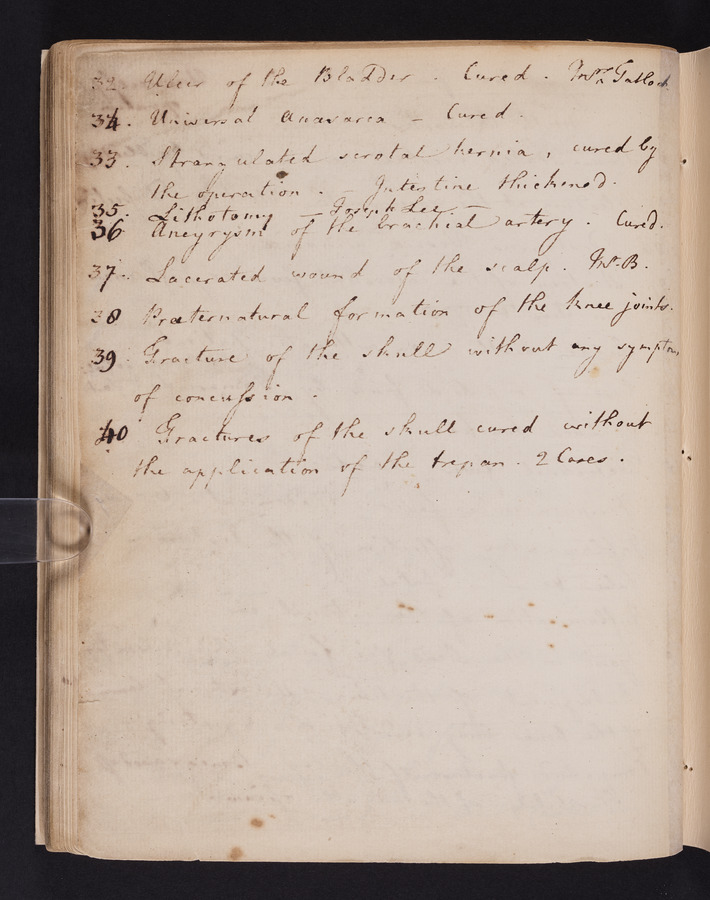 32. Ulcer of the Bladder. Cured. Mrs.
34. Universal Anasarca – Cured.
33. Strangulated scrotal hernia, cured by
the operation. – Intestine thickened.
35. Lithotomy – Joseph Lee –
36 Aneyrysm of the brachial artery. Cured.
37. Lacerated wound of the scalp. Mr. B.
38 Præternatural formation of the knee joints.
39. Fracture of the skull without any symptom
of concussion.
40 Fractures of the skull cured without
the application of the trepan. 2 Cases.